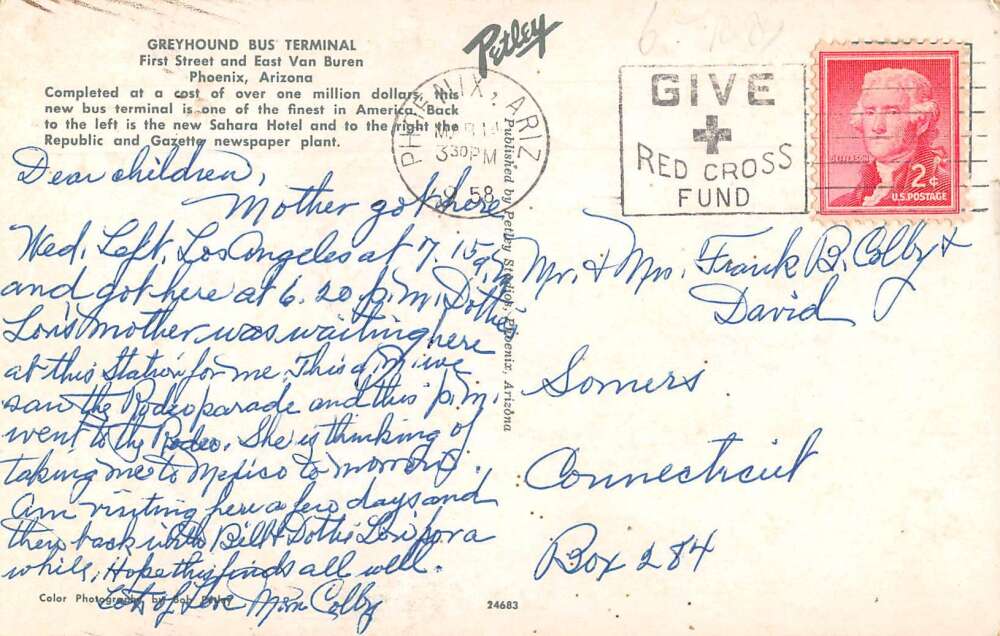 GREYHOUND BUS TERMINAL
First Street and East Van Buren
Phoenix, Arizona
Completed at a cost of over one million dollars, this
new bus terminal is one of the finest in America. Back
to the left is the new Sahara Hotel and to the right the
Republic and Gazette newspaper plant.
Petley
PHOENIX, ARIZ
MAR 14
3 30 PM
1958
GIVE
RED CROSS
FUND
JEFFERSON
2¢
U.S. POSTAGE
Dear children,
Mother got here
Wed. Left Los Angeles at 7.15 a.m.
and got here at 6.20 p.m. Dottie
Lori's mother was waiting here
at this station for me. This a.m. we
saw the Rodeo parade and this p.m.
went to the Rodeo. She is thinking of
taking me to Mexico to morrow.
Am visiting here a few days and
then back with Bill & Dottie Lori for a
while, Hope this finds all well.
Lots of Love Mom Colby
Published by Petley Studios, Phoenix, Arizona
Mr. & Mrs. Frank B. Colby &
David
Somers
Connecticut
Box 284
Color Photography by Bob Petley
24683